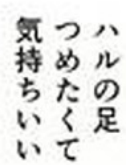 ハルの足
つめたくて
気持ちいい